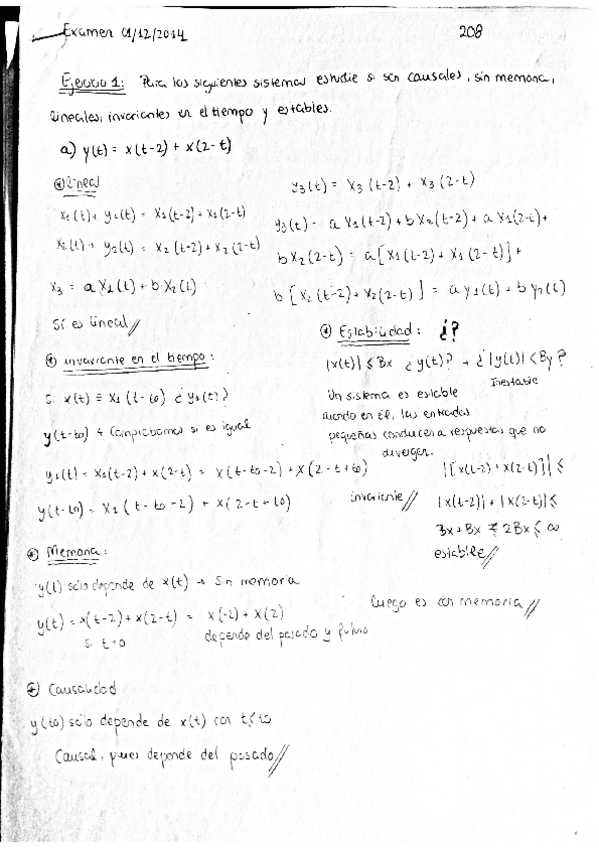 Examen 01/12/2014
208
Ejercicio 1: Para los siguientes sistemas estudie si son causales, sin memoria,
lineales, invariantes en el tiempo y estables.
a) y(t) = x(t-2) + x(2-t)
* Lineal
x1(t) → y1(t) = x1(t-2) + x1(2-t)
x2(t) → y2(t) = x2(t-2) + x2(2-t)
x3 = a x1(t) + b x2(t)
Sí es lineal //
y3(t) = x3(t-2) + x3(2-t)
y3(t) = a x1(t-2) + b x2(t-2) + a x1(2-t) +
b x2(2-t) = a [x1(t-2) + x1(2-t)] +
b [x2(t-2) + x2(2-t)] = a y1(t) + b y2(t)
* invariante en el tiempo:
Si x(t) = x1(t-to) ¿y1(t)?
y(t-to) Comprobamos si es igual
y1(t) = x1(t-2) + x(2-t) = x(t-to-2) + x(2-t+to)
y(t-to) = x1(t-to-2) + x(2-t+to)
invariante //
* Estabilidad: ¿?
|x(t)| ≤ Bx ¿y(t)? → ¿|y(t)| ≤ By?
Inestable
Un sistema es estable
cuando en él, las entradas
pequeñas conducen a respuestas que no
divergen.
|[x(t-2) + x(2-t)]| ≤
|x(t-2)| + |x(2-t)| ≤
Bx + Bx ≤ 2Bx ≤ ∞
estable //
* Memoria:
y(t) sólo depende de x(t) → Sin memoria
y(t) = x(t-2) + x(2-t) = x(-2) + x(2)
si t=0
depende del pasado y futuro
luego es con memoria //
* Causalidad
y(to) sólo depende de x(t) con t ≤ to
Causal, pues depende del pasado //